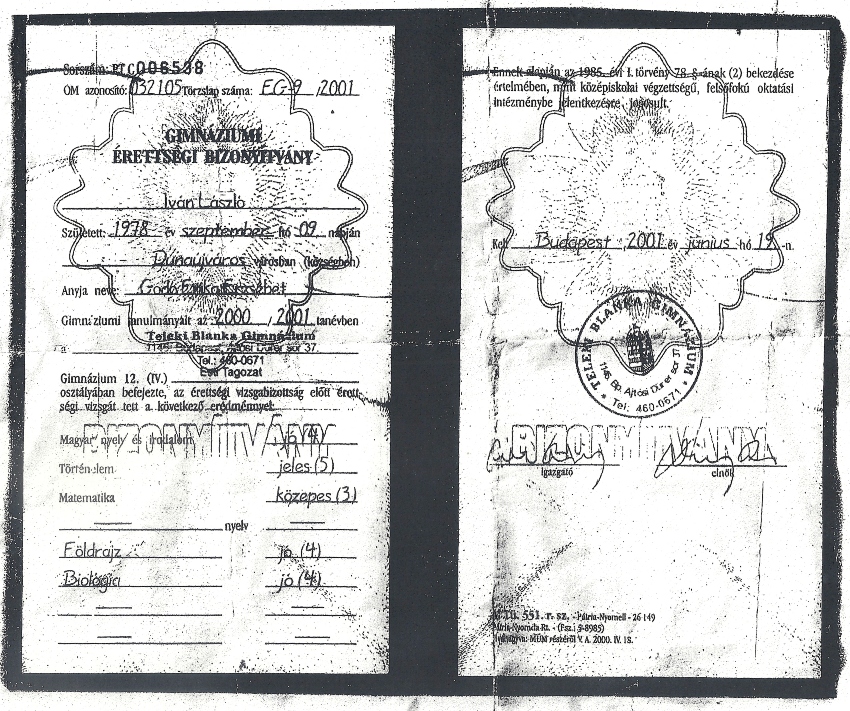 Sorszám: PTC 006538
OM azonosító: 032105 Törzslap száma: EG-9 ,2001
GIMNÁZIUMI
ÉRETTSÉGI BIZONYÍTVÁNY
Iván László
Született: 1978 év szeptember hó 09 napján
Dunaújváros városban (községben)
Anyja neve: Godó Erika Erzsébet
Gimnáziumi tanulmányait az 2000 , 2001 tanévben
Teleki Blanka Gimnázium
1145. Budapest, Ajtósi Dürer sor 37.
a
Tel.: 460-0671
Esti Tagozat
Gimnázium 12. (IV.)
osztályában befejezte, az érettségi vizsgabizottság előtt érett-
ségi vizsgát tett a következő eredménnyel:
BIZONYÍTVÁNY
Magyar nyelv és irodalom jó (4)
Történelem jeles (5)
Matematika közepes (3)
nyelv
Földrajz jó (4)
Biológia jó (4)
Ennek alapján az 1985. évi I. törvény 78. §-ának (2) bekezdése
értelmében, mint középiskolai végzettségű, felsőfokú oktatási
intézménybe jelentkezésre jogosult.
Kelt Budapest ,2001 év június hó 19 -n.
TELEKI BLANKA GIMNÁZIUM
1145 Bp. Ajtósi Dürer sor 37.
Tel: 460-0671
BIZONYÍTVÁNY
igazgató elnök
A. Tü. 551. r. sz. - Pátria-Nyomell - 26 149
Pátria-Nyomda Rt. - (Fsz.: 9-8985)
MÜM részéről V. A. 2000. IV. 18.